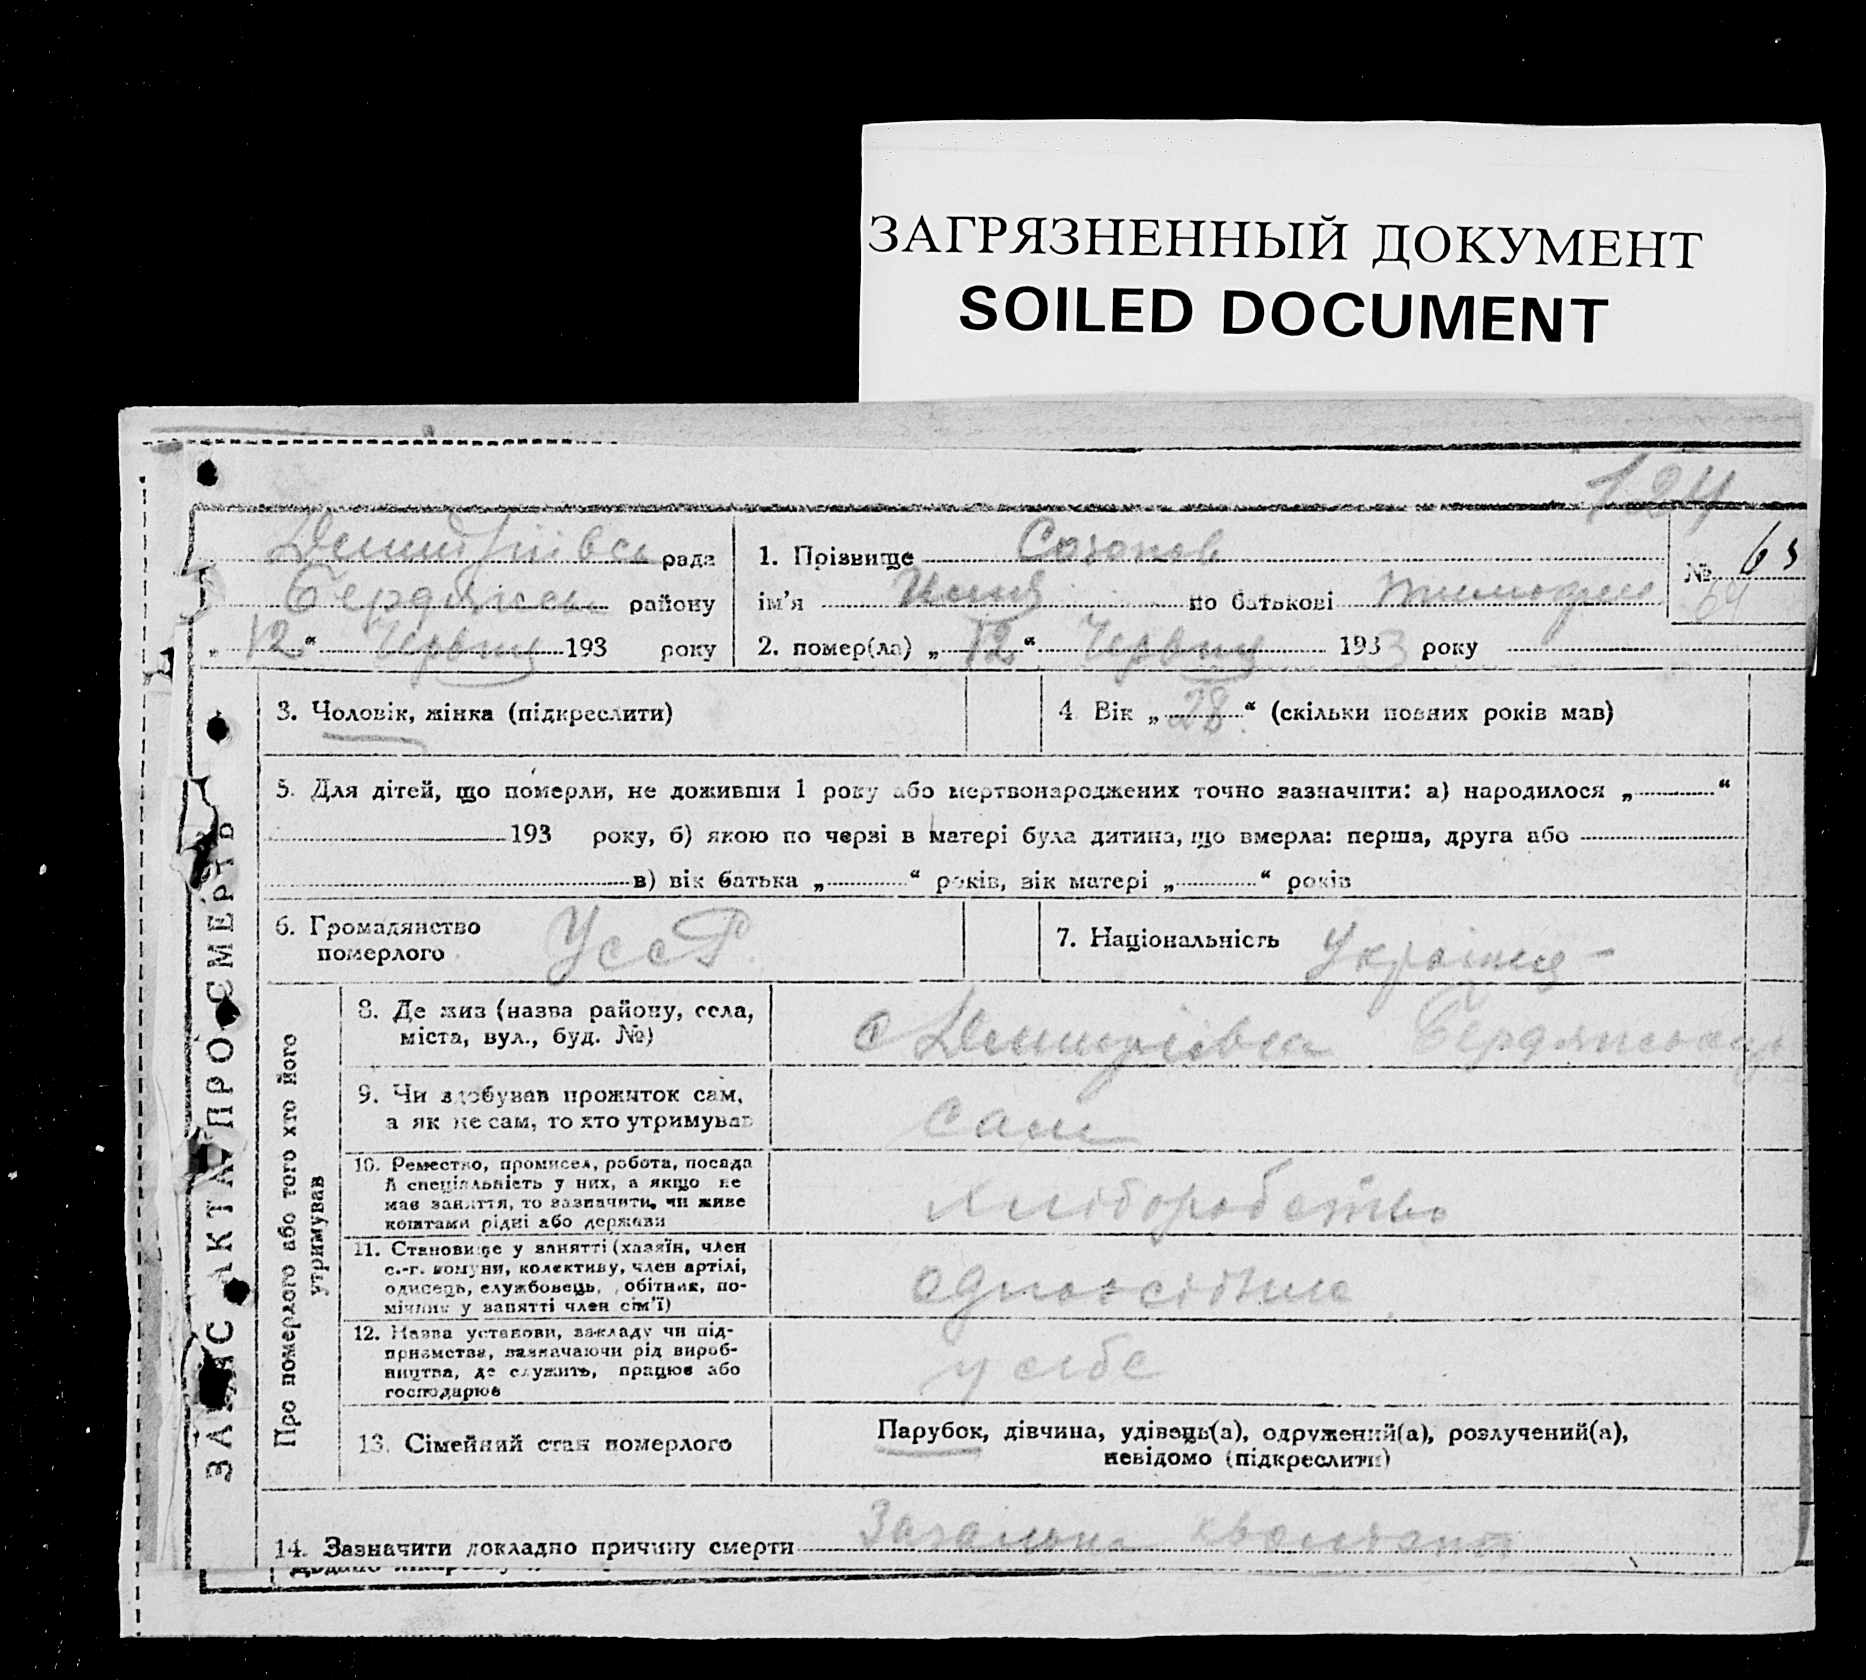 ЗАГРЯЗНЕННЫЙ ДОКУМЕНТ
SOILED DOCUMENT
124
рада
Бердянськ району
„12“ Червня 193 року
1. Прізвище Созонов
№ 63
64
ім'я по батькові
2. помер(ла) „12“ Червня 1933 року
ЗАПИС АКТА ПРО СМЕРТЬ
3. Чоловік, жінка (підкреслити)
4. Вік „28“ (скільки повних років мав)
5. Для дітей, що померли, не доживши 1 року або мертвонароджених точно зазначити: а) народилося „ “
193 року, б) якою по черзі в матері була дитина, що вмерла: перша, друга або
в) вік батька „ “ років, вік матері „ “ років
6. Громадянство
померлого УССР
7. Національність
Про померлого або того хто його
утримував
8. Де жив (назва району, села,
міста, вул., буд. №)
с
9. Чи здобував прожиток сам,
а як не сам, то хто утримував
сам
10. Ремество, промисел, робота, посада
й спеціальність у них, а якщо не
має заняття, то зазначити, чи живе
коштами рідні або держави
хліборобство
11. Становище у занятті (хазяїн, член
с.-г. комуни, колективу, член артілі,
одинець, службовець, обітник, по-
мічник у занятті член сім'ї)
12. Назва установи, закладу чи під-
приємства, зазначаючи рід вироб-
ництва, де служить, працює або
господарює
у себе
13. Сімейний стан померлого
Парубок, дівчина, удівець(а), одружений(а), розлучений(а),
невідомо (підкреслити)
14. Зазначити докладно причину смерти Загальна